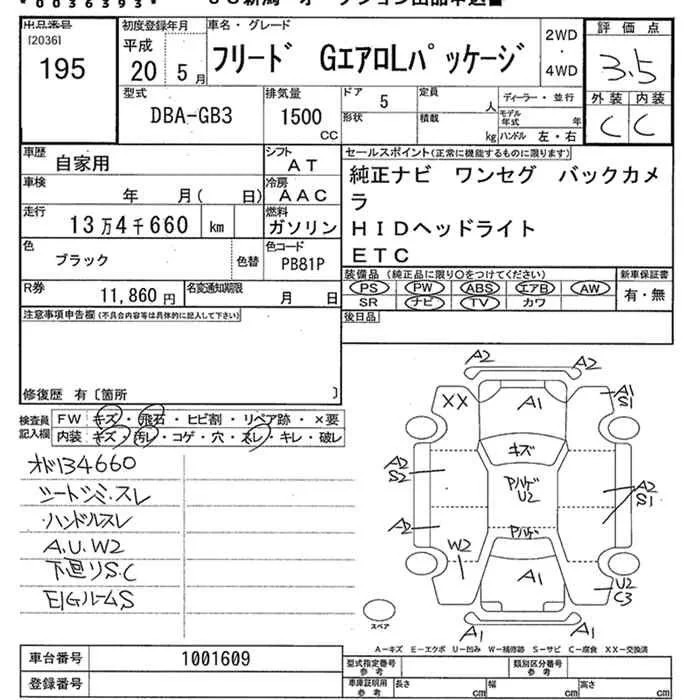 *0036393*
出品番号
[2036]
195
初度登録年月
平成
20 5月
車名・グレード
フリード GエアロLパッケージ
2WD
・
4WD
評価点
3.5
外装 内装
C C
型式
DBA-GB3
排気量
1500
CC
ドア 5
形状
定員 人
積載 kg
ディーラー・並行
モデル年式 年
ハンドル 左・右
車歴
自家用
シフト
AT
車検
年 月( 日)
冷房
AAC
走行
13万4千660 km
燃料
ガソリン
色
ブラック
色替
色コード
PB81P
R券
11,860円
名変通知期限
月 日
セールスポイント(正常に機能するものに限ります)
純正ナビ ワンセグ バックカメ
ラ
HIDヘッドライト
ETC
装備品(純正品に限り○をつけてください)
新車保証書
PS PW ABS エアB AW
SR ナビ TV カワ
有・無
後日品
注意事項申告欄(不具合内容等は具体的に記入して下さい)
修復歴 有〔箇所 〕
検査員
記入欄
FW キズ・飛石・ヒビ割・リペア跡・×要
内装 キズ・汚レ・コゲ・穴・スレ・キレ・破レ
オド134660
シートシミ・スレ
ハンドルスレ
A.U.W2
下廻りS.C
E/GルームS
A2
A2
XX
A1
A1
S1
キズ
A2
S2
アハゲ
U2
A2
S1
A2
アハゲ
W2
A1
U2
C3
A1
A1
スペア
A-キズ E-エクボ U-凹み W-補修跡 S-サビ C-腐食 XX-交換済
車台番号 1001609
登録番号
型式指定番号
参考
類別区分番号
参考
車庫証明用
参考
長さ cm
幅 cm
高さ cm